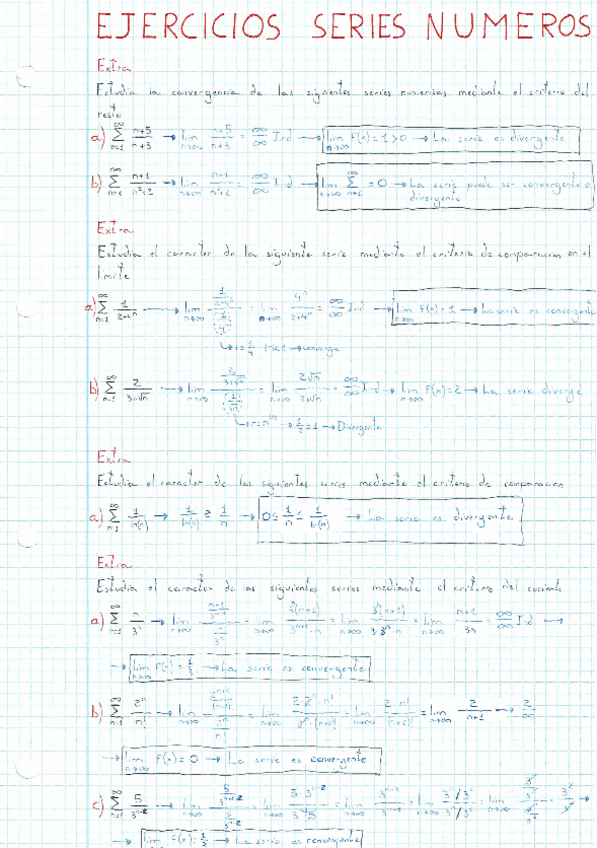 EJERCICIOS SERIES NUMEROS
Extra
Estudia la convergencia de las siguientes series numericas mediante el criterio del
resto
a) ∑ n=1 ∞ n+5/n+3 → lim n→∞ n+5/n+3 = ∞/∞ Ind → lim n→∞ F(x) = 1 > 0 → La serie es divergente
b) ∑ n=1 ∞ n+1/n²+2 → lim n→∞ n+1/n²+2 = ∞/∞ Ind → lim n→∞ ∑ n=1 ∞ = 0 → La serie puede ser convergente o
divergente
Extra
Estudia el caracter de la siguiente serie mediante el criterio de comparacion en el
limite
a) ∑ n=1 ∞ 1/2+4ⁿ → lim n→∞ = lim n→∞ 4ⁿ/2+4ⁿ = ∞/∞ Ind → lim n→∞ F(x) = 1 → La serie es convergente
→ converge
b) ∑ n=1 ∞ 2/3+√n → lim n→∞ = lim n→∞ 2√n/3+√n = ∞/∞ Ind → lim n→∞ F(x) = 2 → La serie diverge
→ Divergente
Extra
Estudia el caracter de las siguientes series mediante el criterio de comparacion
a) ∑ n=1 ∞ 1/ln(n) → 1/ln(n) ≥ 1/n → 0 ≤ 1/n ≤ 1/ln(n) → La serie es divergente
Extra
Estudia el caracter de las siguientes series mediante el criterio del cociente
a) ∑ n=1 ∞ n/3ⁿ → lim n→∞ = lim n→∞ = lim n→∞ = lim n→∞ n+1/3n = ∞/∞ Ind →
→ lim n→∞ F(x) = 1/3 → La serie es convergente
b) ∑ n=1 ∞ 2ⁿ/n! → lim n→∞ = lim n→∞ 2·2ⁿ·n!/2ⁿ·(n+1)! = lim n→∞ 2·n!/(n+1)! = lim n→∞ 2/n+1 → 2/∞
→ lim n→∞ F(x) = 0 → La serie es convergente
c) ∑ n=1 ∞ → lim n→∞ = lim n→∞ = lim n→∞ = lim n→∞ = lim n→∞
→ lim n→∞ F(x) = 1/3 → La serie es convergente